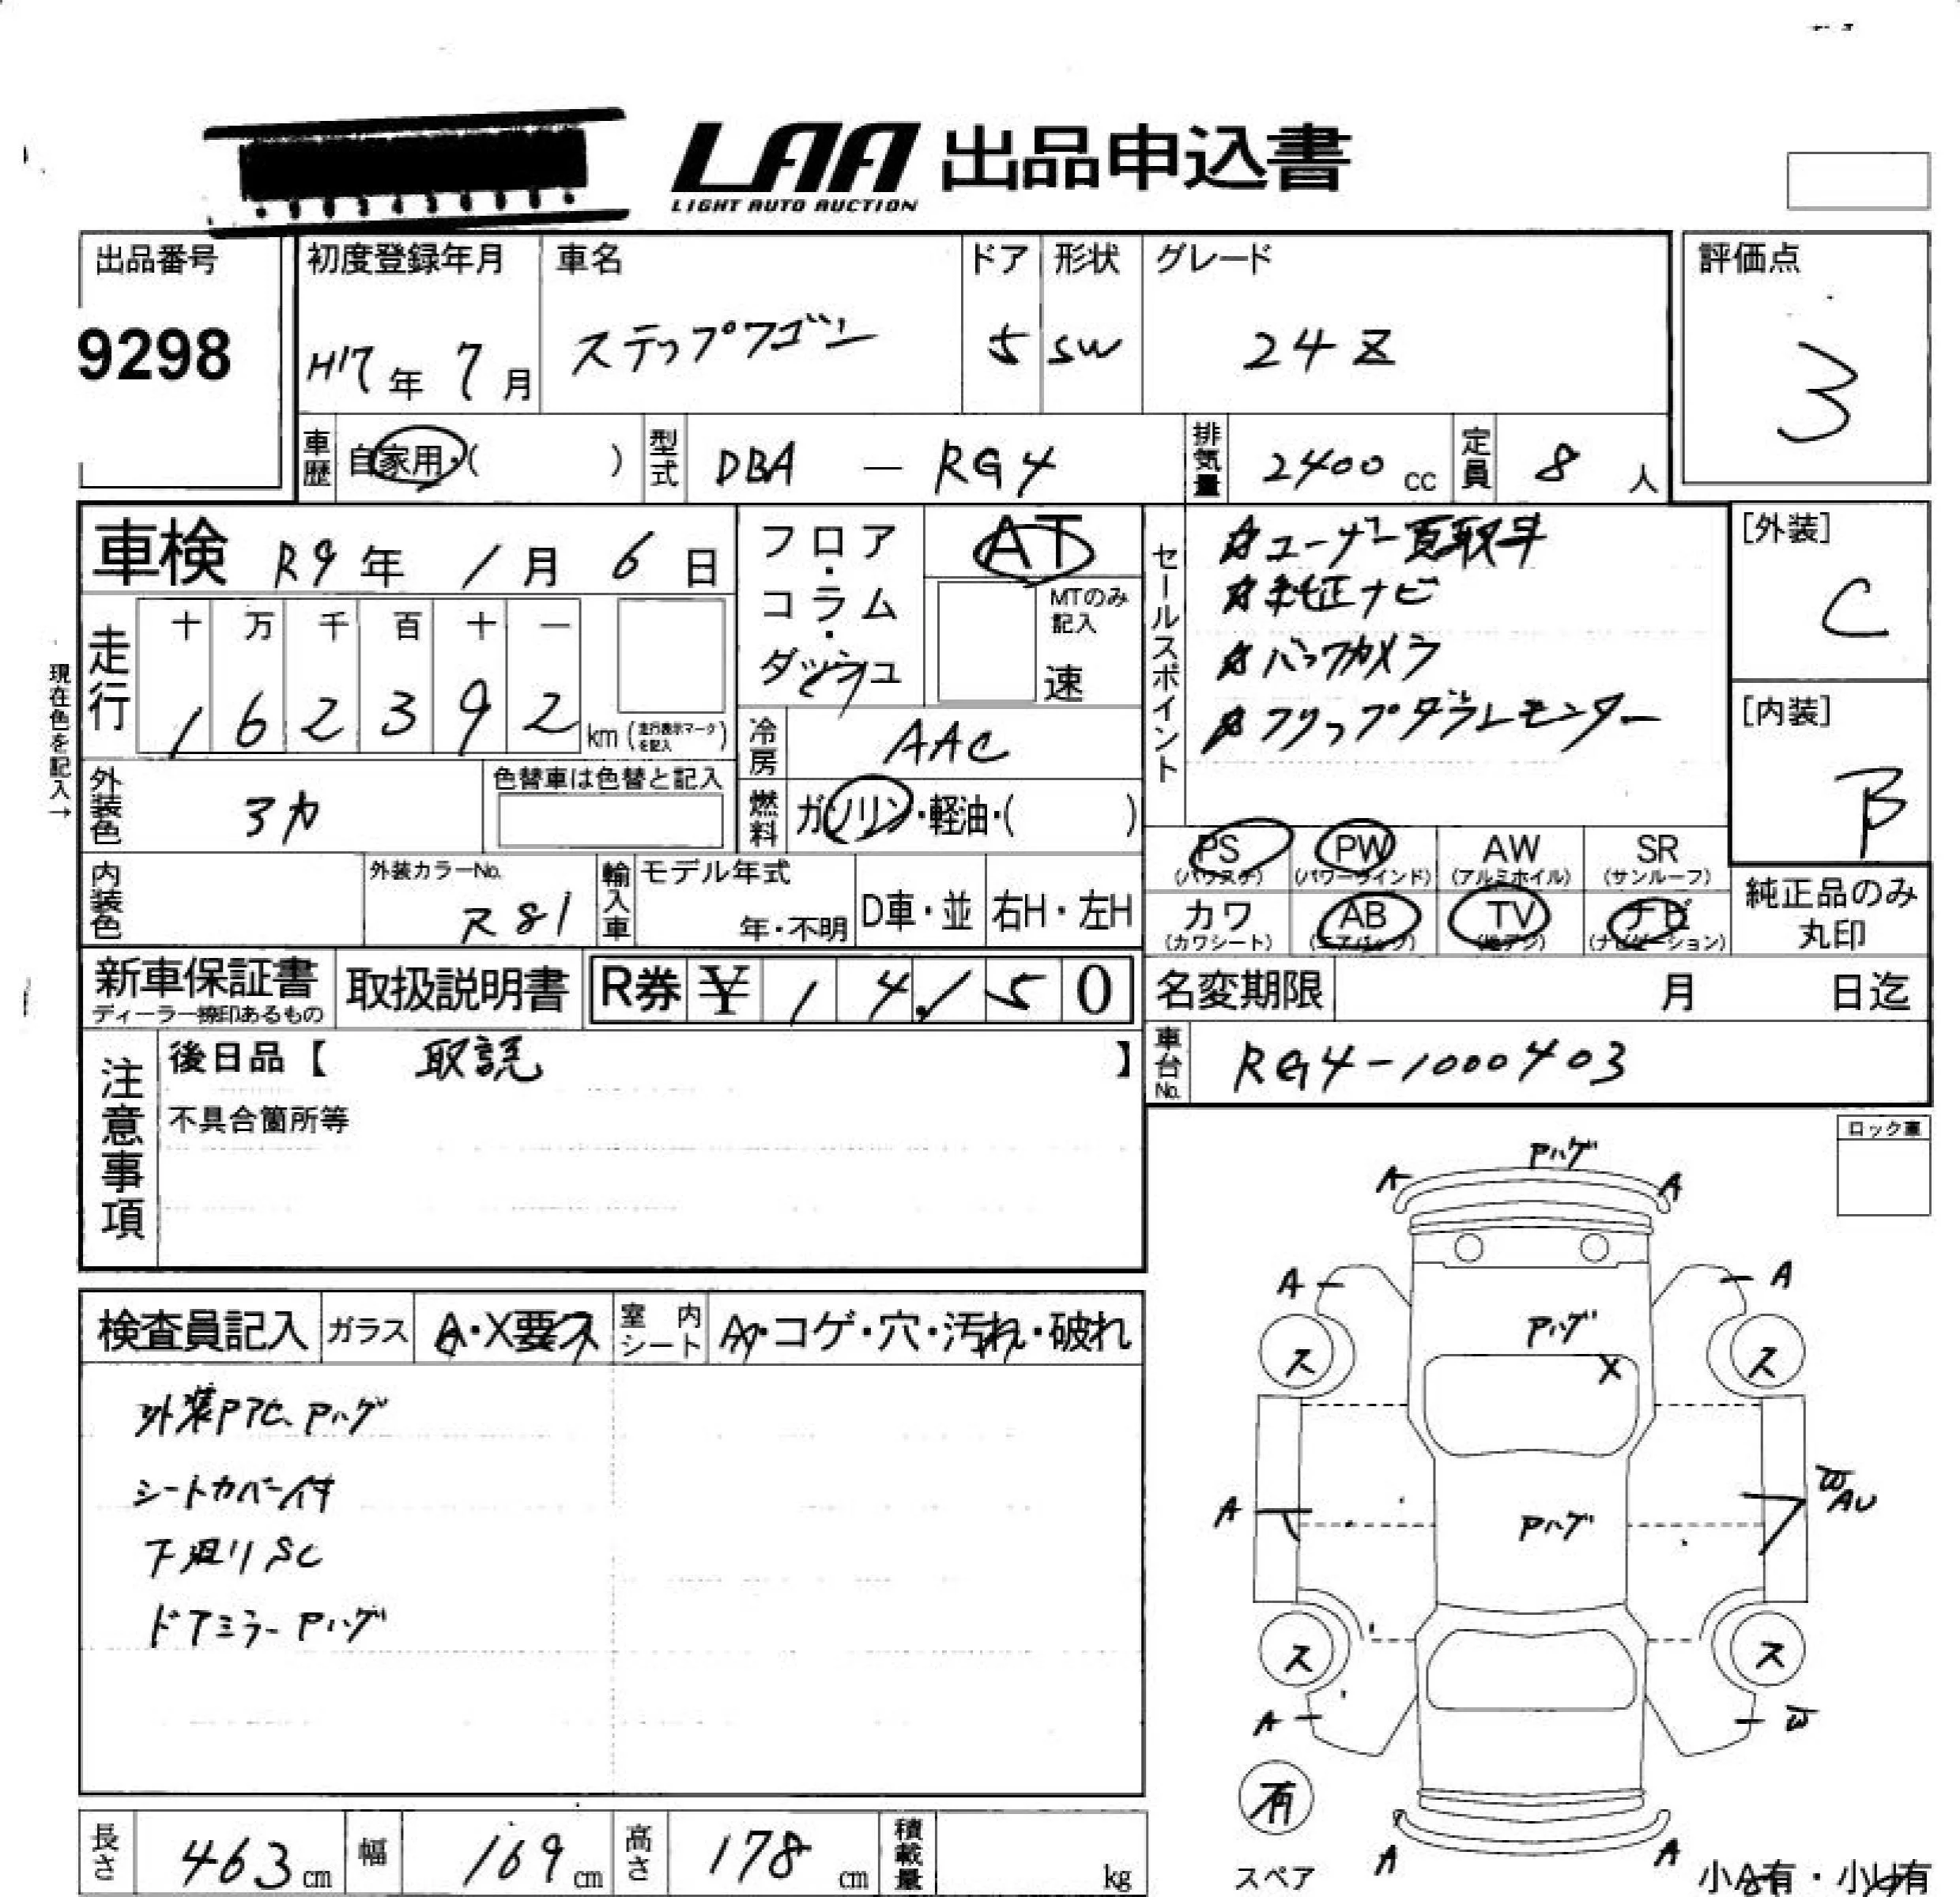 LAA 出品申込書
LIGHT AUTO AUCTION
出品番号
9298
初度登録年月
H17年 7月
車名
ステップワゴン
ドア
5
形状
SW
グレード
24Z
評価点
3
車歴
自家用・( )
型式
DBA — RG4
排気量
2400 cc
定員
8 人
車検 R9年 1月 6日
現在色を記入→
走行
十 万 千 百 十 一
1 6 2 3 9 2 km (走行表示マークを記入)
フロア・コラム・ダッシュ
AT
MTのみ記入
速
冷房
AAC
燃料
ガソリン・軽油・( )
外装色
3カ
色替車は色替と記入
内装色
外装カラーNo.
R81
輸入車
モデル年式
年・不明
D車・並
右H・左H
セールスポイント
ユーザー買取車
純正ナビ
バックカメラ
フリップダウンモニター
[外装]
C
[内装]
B
PS (パワステ)
PW (パワーウインド)
AW (アルミホイル)
SR (サンルーフ)
カワ (カワシート)
AB (エアバッグ)
TV (地デジ)
ナビ (ナビゲーション)
純正品のみ
丸印
新車保証書
ディーラー捺印あるもの
取扱説明書
R券 ¥ 1 4 1 5 0
名変期限 月 日迄
車台No.
RG4-1000403
注意事項
後日品【 取説 】
不具合箇所等
ロック車
検査員記入
ガラス
A・X要ス
室内シート
A・コゲ・穴・汚れ・破れ
外装PTC、Pハゲ
シートカバー付
下廻りSC
ドアミラーPハゲ
Pハゲ
A A
A A
Pハゲ
X
ス ス
A
Pハゲ
W
AU
ス ス
A W
有
スペア
A A
小A有・小U有
長さ
463 cm
幅
169 cm
高さ
178 cm
積載量
kg